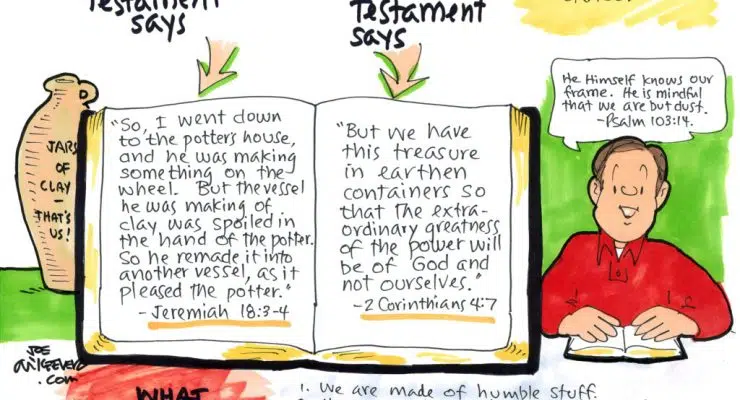 Testament
says
Testament
says
He Himself knows our
frame. He is mindful
that we are but dust.
-Psalm 103:14.
JARS
OF
CLAY
—
THAT'S
US!
"So, I went down
to the potters house,
and he was making
something on the
wheel. But the vessel
he was making of
clay was spoiled in
the hand of the potter.
So he remade it into
another vessel, as it
pleased the potter."
- Jeremiah 18:3-4
"But we have
this treasure
in earthen
containers so
that the extra-
ordinary greatness
of the power will
be of God and
not ourselves."
-2 Corinthians 4:7
JOE
McKeever
.com
WHAT
1. We are made of humble stuff.